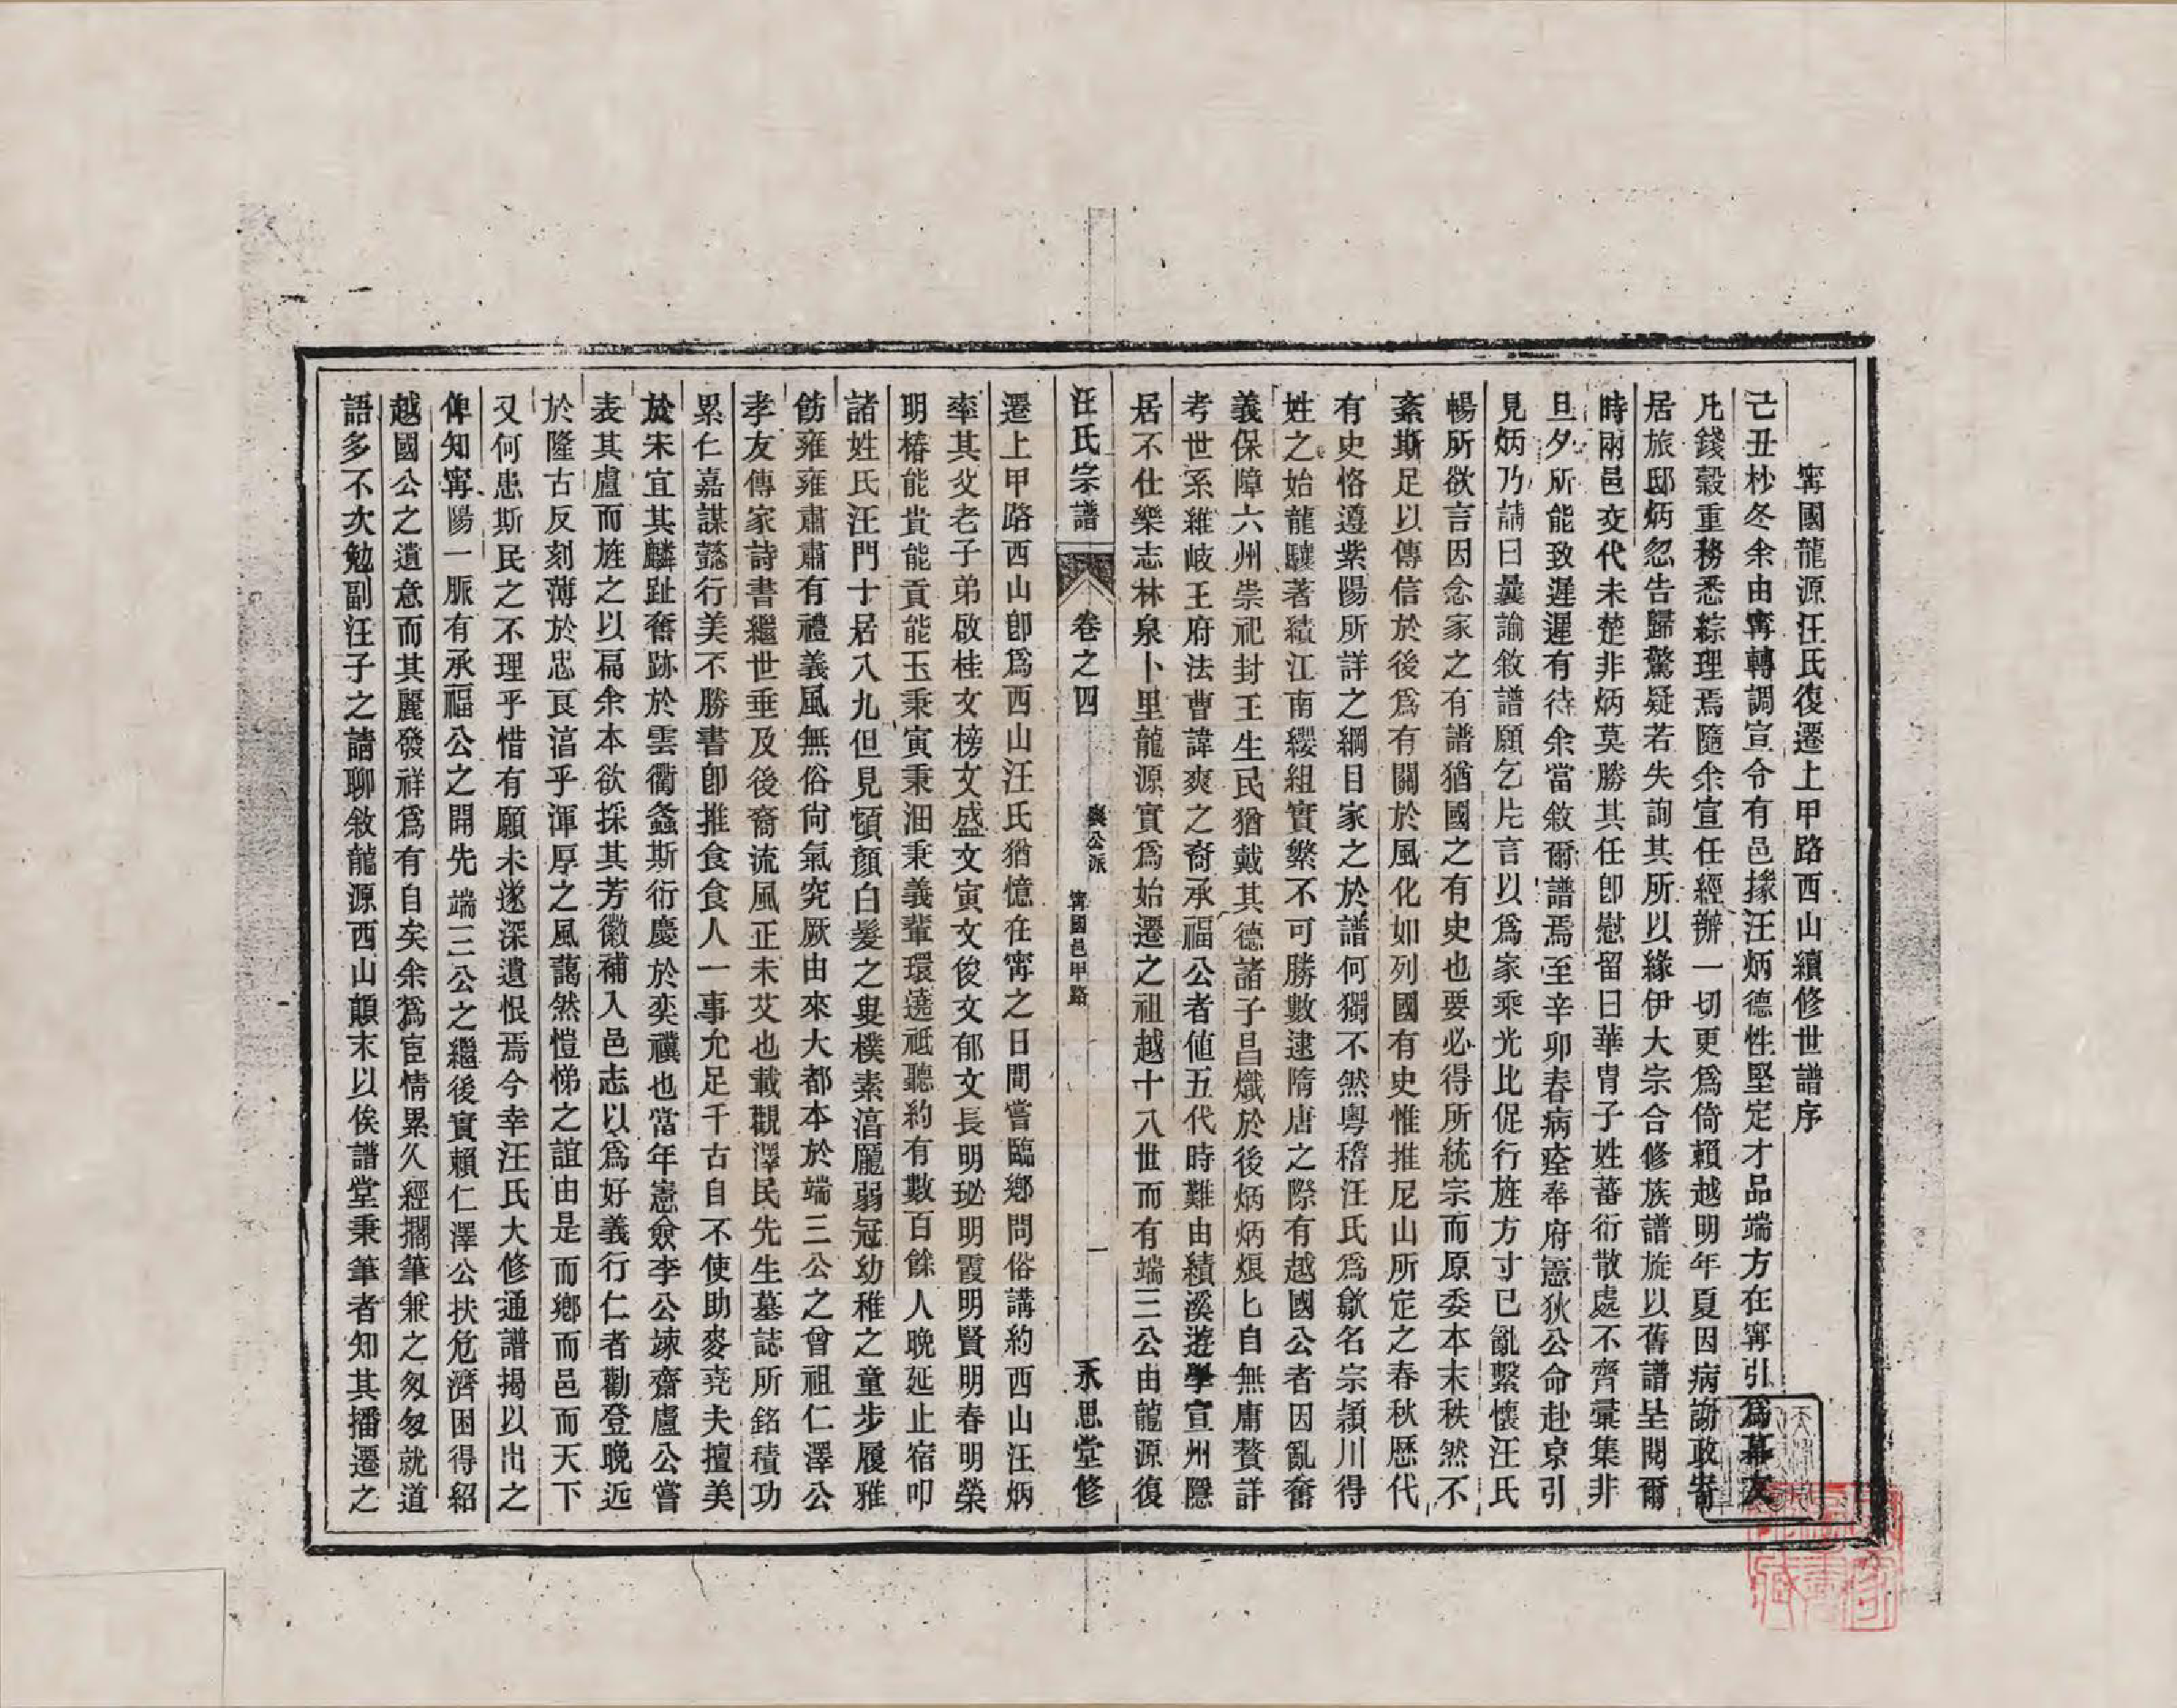 寗國龍源汪氏復遷上甲路西山續修世譜序
己丑杪冬余由寗轉調宣令有邑掾汪炳德性堅定才品端方在寗引爲幕友
凡錢穀重務悉綜理焉隨余宣任經辦一切更爲倚賴越明年夏因病謝政寄
居旅邸炳忽告歸驚疑若失詢其所以緣伊大宗合修族譜旋以舊譜呈閱爾
時兩邑交代未楚非炳莫勝其任卽慰留曰華胄子姓蕃衍散處不齊彙集非
旦夕所能致遲遲有待余當敘爾譜焉至辛卯春病痊奉府憲狄公命赴京引
見炳乃請曰曩諭敘譜願乞片言以爲家乘光比促行旌方寸已亂繫懷汪氏
暢所欲言因念家之有譜猶國之有史也要必得所統宗而原委本末秩然不
紊斯足以傳信於後爲有關於風化如列國有史惟推尼山所定之春秋歷代
有史恪遵紫陽所詳之綱目家之於譜何獨不然粤稽汪氏爲歙名宗潁川得
姓之始龍驤著績江南纓組實繁不可勝數逮隋唐之際有越國公者因亂奮
義保障六州崇祀封王生民猶戴其德諸子昌熾於後炳炳烺匕自無庸贅詳
考世系維岐王府法曹諱爽之裔承福公者値五代時難由績溪遊學宣州隱
居不仕樂志林泉卜里龍源實爲始遷之祖越十八世而有端三公由龍源復
汪氏宗譜 卷之四 爽公派 寗國邑甲路 一 永思堂修
遷上甲路西山卽爲西山汪氏猶憶在寗之日間嘗臨鄉問俗講約西山汪炳
率其父老子弟啟桂文榜文盛文寅文俊文郁文長明珌明霞明賢明春明榮
明椿能貴能貢能玉秉寅秉沺秉義輩環遶祗聽約有數百餘人晚延止宿叩
諸姓氏汪門十居八九但見頒顏白髮之叟樸素湻龎弱冠幼稚之童步履雅
飭雍雍肅肅有禮義風無俗尙氣究厥由來大都本於端三公之曾祖仁澤公
孝友傳家詩書繼世垂及後裔流風正未艾也載觀澤民先生墓誌所銘積功
累仁嘉謀懿行美不勝書卽推食食人一事允足千古自不使助麥堯夫擅美
於宋宜其麟趾奮跡於雲衢螽斯衍慶於奕禩也當年憲僉李公竦齋盧公嘗
表其廬而旌之以扁余本欲採其芳徽補入邑志以爲好義行仁者勸登晚近
於隆古反刻薄於忠良湻乎渾厚之風藹然愷悌之誼由是而鄉而邑而天下
又何患斯民之不理乎惜有願未遂深遺恨焉今幸汪氏大修通譜揭以出之
俾知寗陽一脈有承福公之開先端三公之繼後實賴仁澤公扶危濟困得紹
越國公之遺意而其麗發祥爲有自矣余爲宦情累久經擱筆兼之匆匆就道
語多不次勉副汪子之請聊敘龍源西山顚末以俟譜堂秉筆者知其播遷之